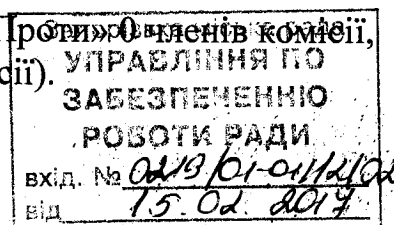 Проти» 0 членів комісії,
сії).
УПРАВЛІННЯ ПО
ЗАБЕЗПЕЧЕННЮ
РОБОТИ РАДИ
вхід. №
від 15. 02. 2017